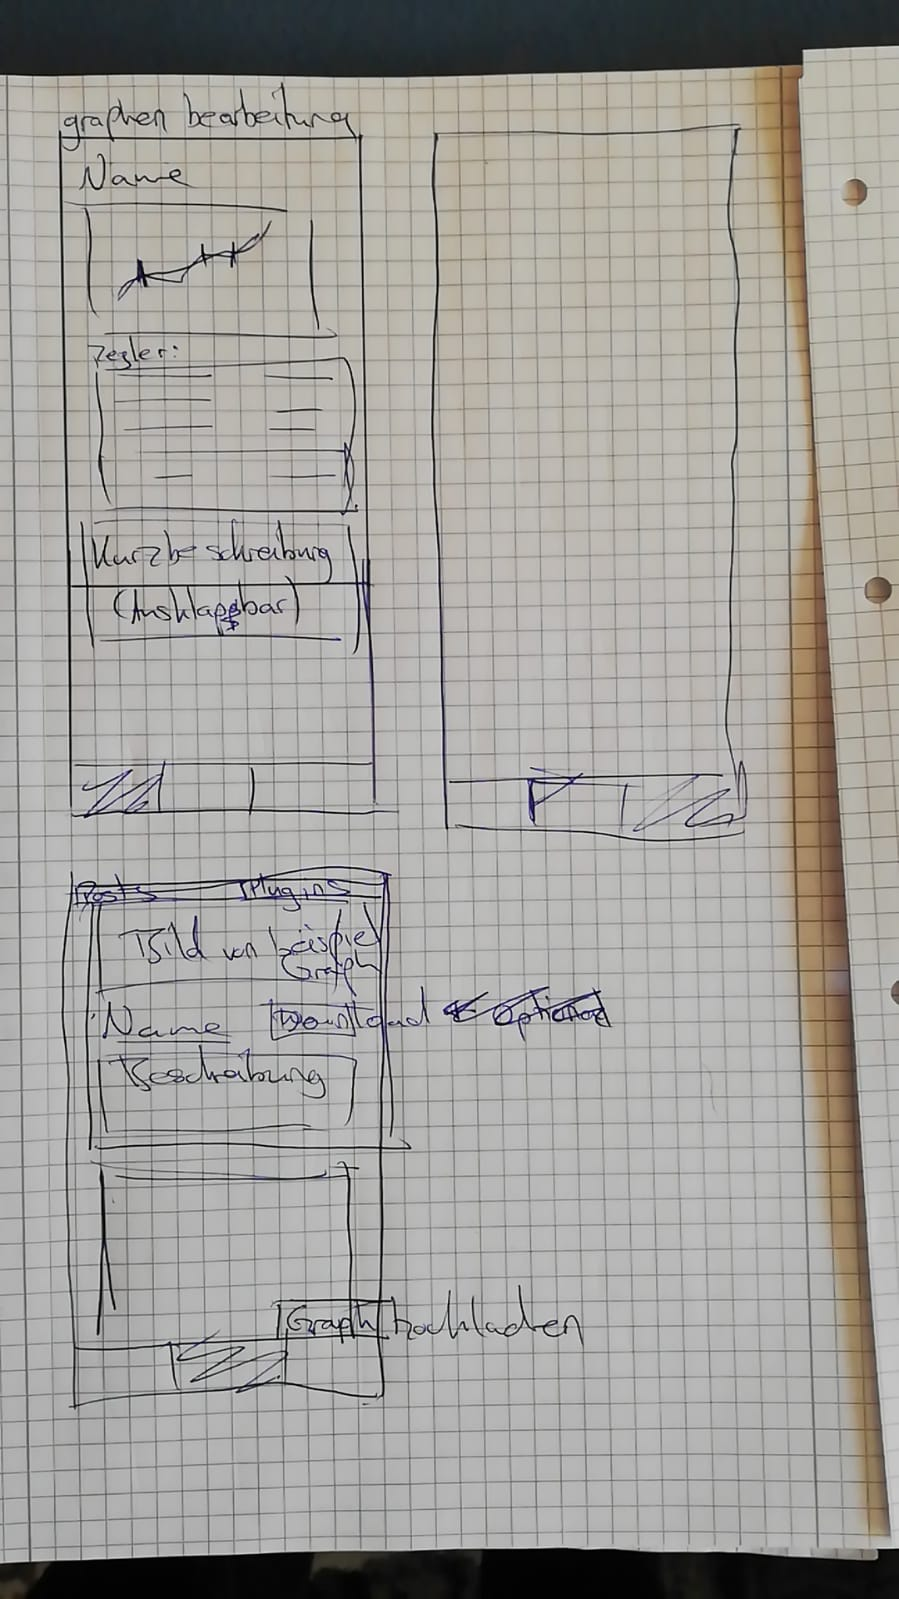 graphen bearbeitung
Name
Regler:
Kurzbeschreibung
(Ausklappbar)
Posts Plugins
Bild von beispiel
Graph
Name Download
Beschreibung
Graph hochladen